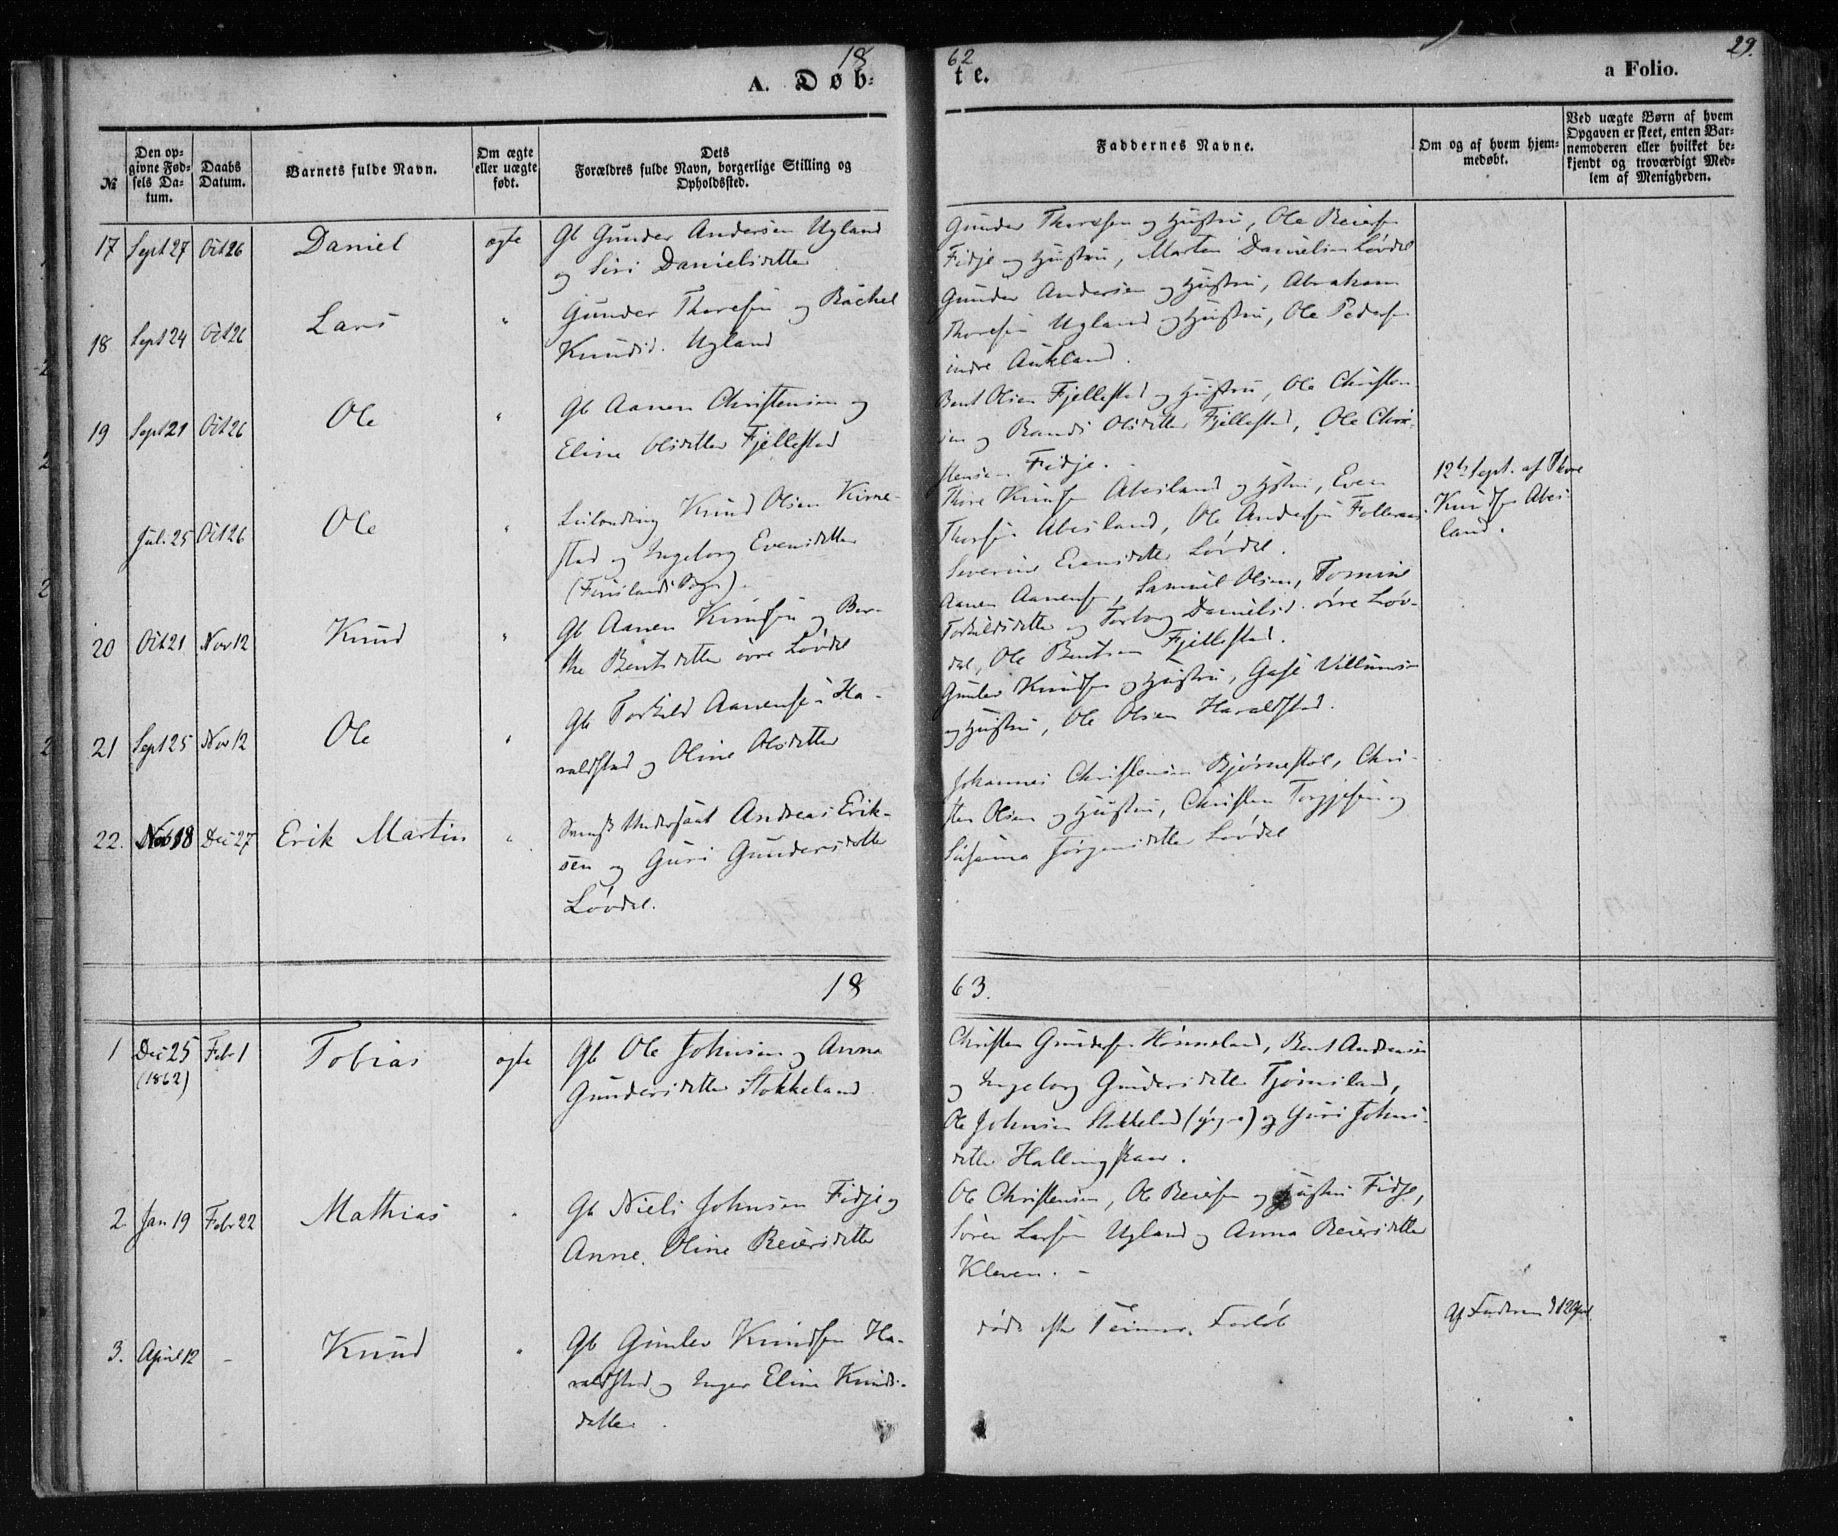 18
62
29.
A. Døb-
te.
a Folio.
№
Den op-
givne Fød-
sels Da-
tum.
Daabs
Datum.
Barnets fulde Navn.
Om ægte
eller uægte
født.
Dets
Forældres fulde Navn, borgerlige Stilling og
Opholdssted.
Faddernes Navne.
Om og af hvem hjem-
medøbt.
Ved uægte Børn af hvem
Opgaven er skeet, enten Bar-
nemoderen eller hvilket be-
kjendt og troværdigt Med-
lem af Menigheden.
17 Sept 27 Oct 26 Daniel ægte Gb Gunder Andersen Ugland
og Siri Danielsdatter
Gunder Thoresen og Hustru, Ole Reiersen
Fidje og Hustru, Marten Danielsen Løvdal
18 Sept 24 Oct 26 Lars " Gunder Thoresen og Rachel
Knudsd. Ugland
Gunder Andersen og Hustru, Abraham
Thoresen Ugland og Hustru, Ole Pedersen
indre Aukland.
19 Sept 21 Oct 26 Ole " Gb Aanen Christensen og
Eline Olsdatter Fjellestad
Bent Olsen Fjellestad og Hustru, Ole Christen-
sen og Randi Olsdatter Fjellestad, Ole Chri-
stensen Fidje.
Jul. 25 Oct 26 Ole " Leilending Knud Olsen Kirke-
stad og Ingeborg Evensdatter
(Finslands Sogn).
Thore Knudsen Abesland og Hstru, Even
Thorsen Abesland, Ole Andersen
Severine Evensdatter Løvdal.
12te Sept. af Thore
Knudsen Abes-
land.
20 Oct 21 Nov 12 Knud " Gb Aanen Knudsen og Ber-
the Bentsdatter øvre Løvdal
Aanen Aanensen, Samuel Olsen, Tomine
Torkildsdatter og Torborg Danielsd. øvre Løv-
dal, Ole Bentsen Fjellestad.
21 Sept 25 Nov 12 Ole " Gb Torkild Aanensen Ha-
raldstad og Oline Olsdatter
Gunlev Knudsen og Hustru, Villumsen
og Hustru, Ole Olsen Haraldstad.
22. Nov 18 Dec 27 Erik Martin " Svensk Undersaat Andreas Erik-
sen og Guri Gundersdatter
Løvdal.
Johannes Christensen Bjørnestøl, Chri-
sten Olsen og Hustru, Christen Torgjesen og
Susanna Jørgensdatter Løvdal
18
63.
1 Dec 25
(1862) Febr 1 Tobias ægte Gb Ole Johnsen og Anna
Gundersdatter Stokkeland
Christen Gundersen Hønneland, Bent Andreasen
og Ingeborg Gundersdatter Tjomsland,
Ole Johnsen Stokkeland og Guri Johns-
datter Hallingskaar.
2. Jan 19 Febr 22 Mathias " Gb Niels Johnsen Fidje og
Anne Oline Reiersdatter
Ole Christensen, Ole Reiersen og Hustru Fidje,
Søren Larsen Ugland og Anna Reiersdatter
Kleven. -
3. April 12 - Knud " Gb Gunlev Knudsen Ha-
raldstad og Inger Eline Knuds-
datter.
døde efter 1 Times Forløb
Af Faderen d 12 April.